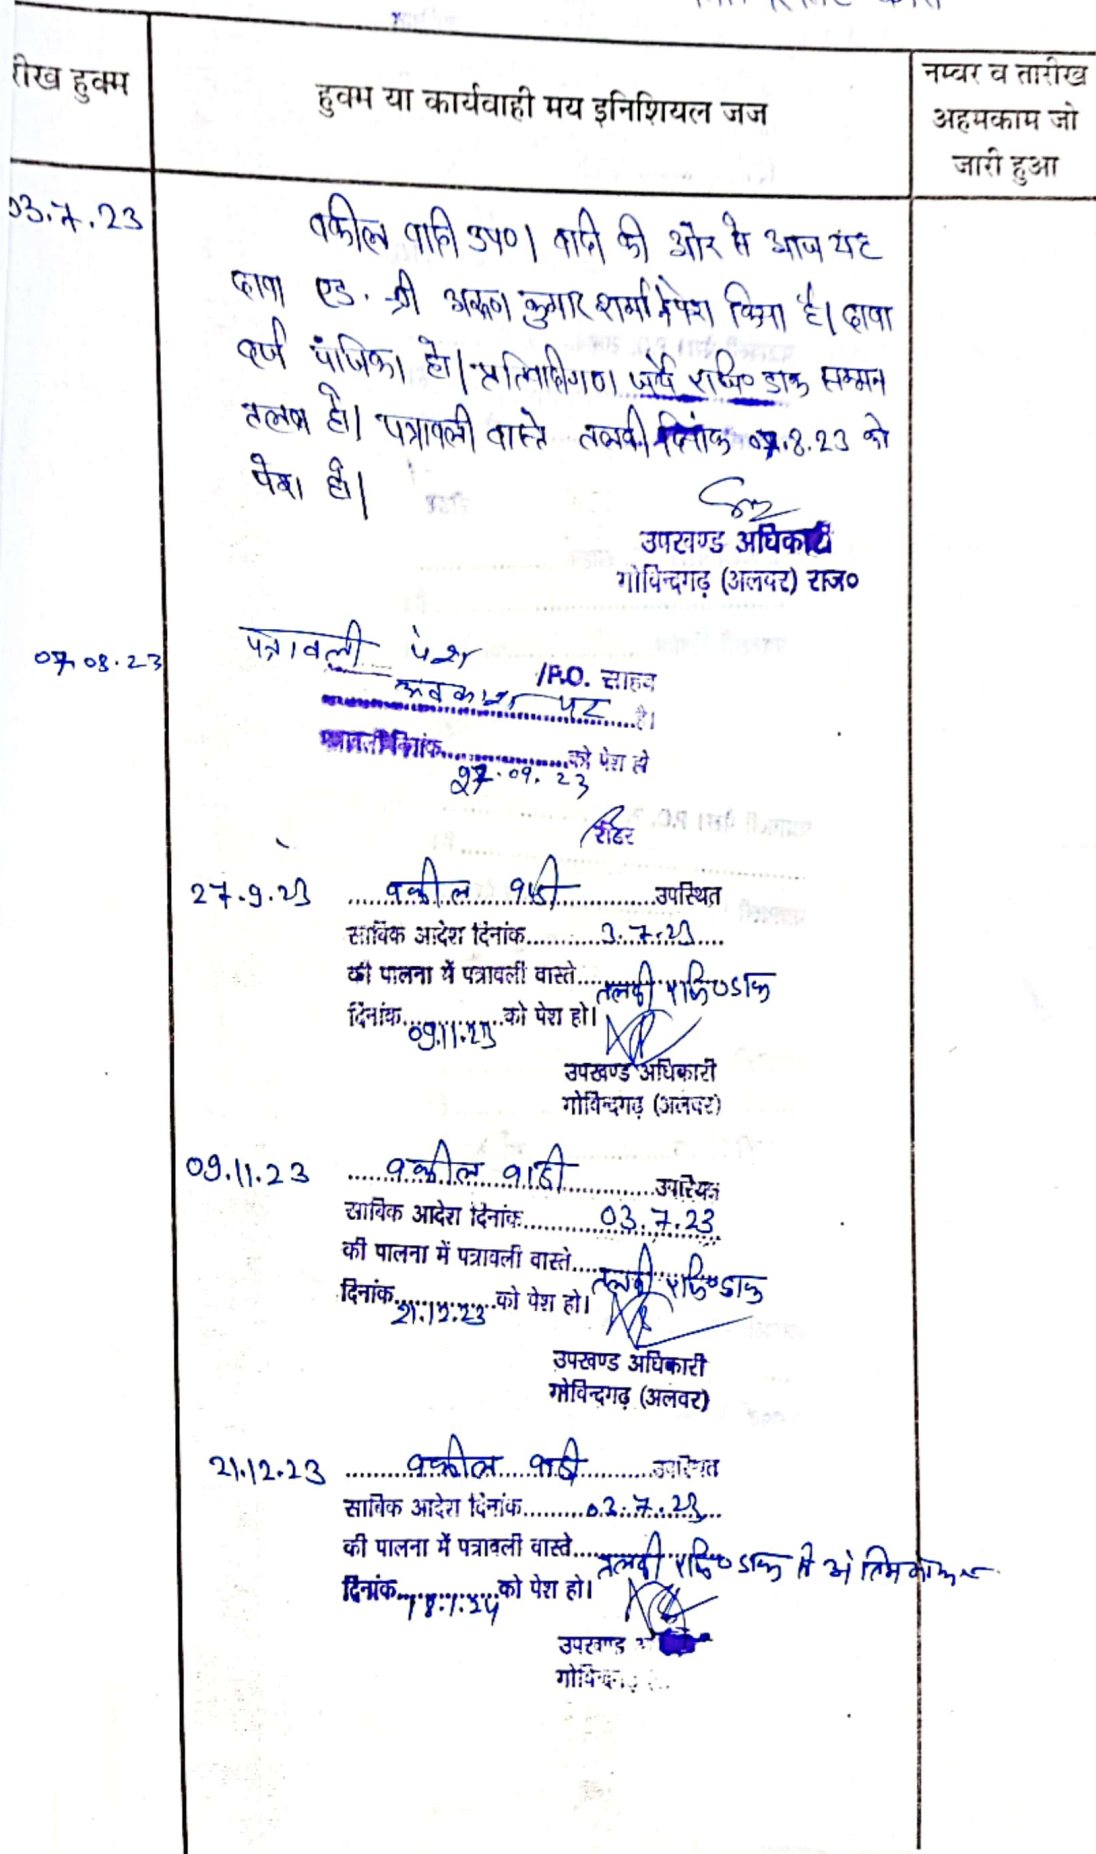 रीख हुक्म
हुक्म या कार्यवाही मय इनिशियल जज
नम्बर व तारीख
अहमकाम जो
जारी हुआ
03.7.23
वकील वादी उप०। वादी की ओर से आज यह
दावा एड. श्री अरूण कुमार शर्मा ने पेश किया है। दावा
दर्ज पंजिका हो। प्रतिवादीगण जर्ये रजि० डाक सम्मन
तलब हो। पत्रावली वास्ते तलबी दिनांक 07.8.23 को
पेश हो।
उपखण्ड अधिकारी
गोविन्दगढ़ (अलवर) राज०
07.08.23
पत्रावली पेश
/P.O. साहब
अवकाश पर
है।
पत्रावली दिनांक..................को पेश हो
27.09.23
रीडर
27.9.23
वकील वादी उपस्थित
साबिक आदेश दिनांक 3.7.23
की पालना में पत्रावली वास्ते तलबी रजि० डाक
दिनांक 09.11.23 को पेश हो।
उपखण्ड अधिकारी
गोविन्दगढ़ (अलवर)
09.11.23
वकील वादी उपस्थित
साबिक आदेश दिनांक 03.7.23
की पालना में पत्रावली वास्ते तलबी रजि० डाक
दिनांक 21.12.23 को पेश हो।
उपखण्ड अधिकारी
गोविन्दगढ़ (अलवर)
21.12.23
वकील वादी उपस्थित
साबिक आदेश दिनांक 03.7.23
की पालना में पत्रावली वास्ते तलबी रजि० डाक से अंतिम
दिनांक 18.1.24 को पेश हो।
उपखण्ड